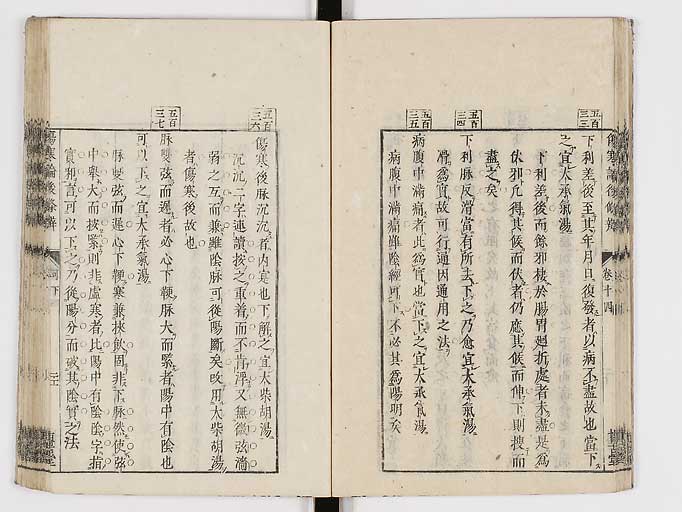 五百三三
下利差後至其年月日復發者以病不盡故也當下
之宜大承氣湯
下利差後而餘邪棲於腸胃廻折處者未盡是爲
伏邪凢得其候而伏者仍應其候而伸下則搜而
盡之矣
五百三四
下利脉反滑當有所去下之乃愈宜大承氣湯
滑爲實故可行通因通用之法
五百三五
病腹中滿痛者此爲實也當下之宜大承氣湯
病腹中滿痛雖陰經可下不必其爲陽明矣
卷十四
五百三六
傷寒後脉沉沉者内實也下解之宜大柴胡湯
沉沉二字連讀按之重着而不肯浮又無微弦濇
弱之互而兼雖陰脉可從陽斷矣攻用大柴胡湯
者傷寒後故也
五百三七
脉雙弦而遲者必心下鞕脉大而緊者陽中有陰也
可以下之宜大承氣湯
脉雙弦而遲心下鞕寒兼
固非下脉然使弦
中舉大而按緊則非虛寒者比陽中有陰陰字指
實和言可以下之乃從陽分而破其陰實之法
傷寒論後條辨
可下